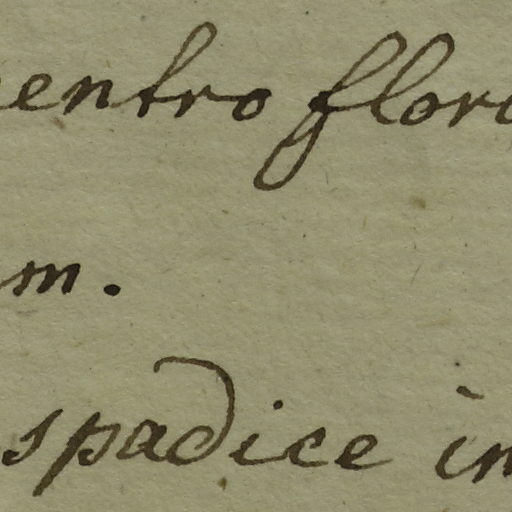 entro flor
m.
spadice in